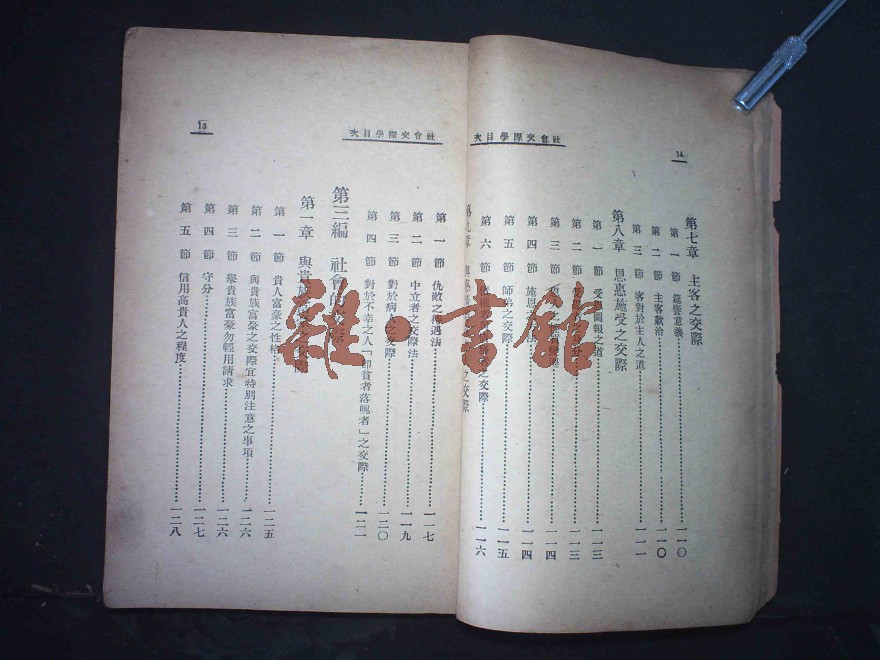 社會交際學目次
14
第七章 主客之交際
第一節 筵讌意義 一一〇
第二節 主客款洽 一一〇
第三節 客對於主人之道 一一一
第八章 恩惠施受之交際
第一節 受 圖報之道 一一三
第二節 一一三
第三節 一一四
第四節 施恩之 一一四
第五節 師弟之交際 一一五
第六節 之交際 一一六
第九章 之交際
社會交際學目次
15
第一節 仇敵之待遇法 一一七
第二節 中立者之交際法 一一九
第三節 對於病人之交際 一二〇
第四節 對於不幸之人「卽貧者落魄者」之交際 一二二
第三編 社會的交際
第一章 與貴族富豪之交際
第一節 貴人富豪之性格 一二五
第二節 與貴族富豪之交際宜特別注意之事項 一二六
第三節 與貴族富豪勿輕用請求 一二六
第四節 守分 一二七
第五節 信用高貴人之程度 一二八
雜·書館